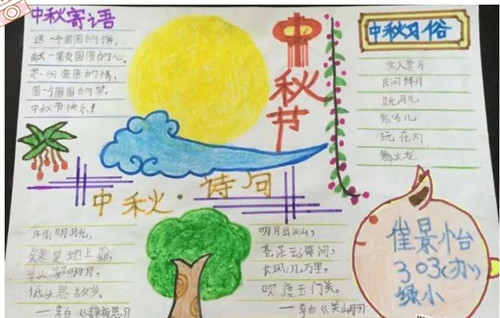 中秋寄语
送一个圆圆的饼,
圆圆的心,
一份圆圆的情,
圆一个圆圆的梦,
中秋节快乐!
中秋节
中秋习俗
文人赏月
民间拜月
玩花灯
舞火龙
中秋·诗词
床前明月光,
疑是地上霜,
举头望明月,
低头思故乡。
—李白《静夜思》
明月出天山,
苍茫云海间,
长风几万里,
吹度玉门关。
—李白《关山月》
崔景怡
303(办)
绿小